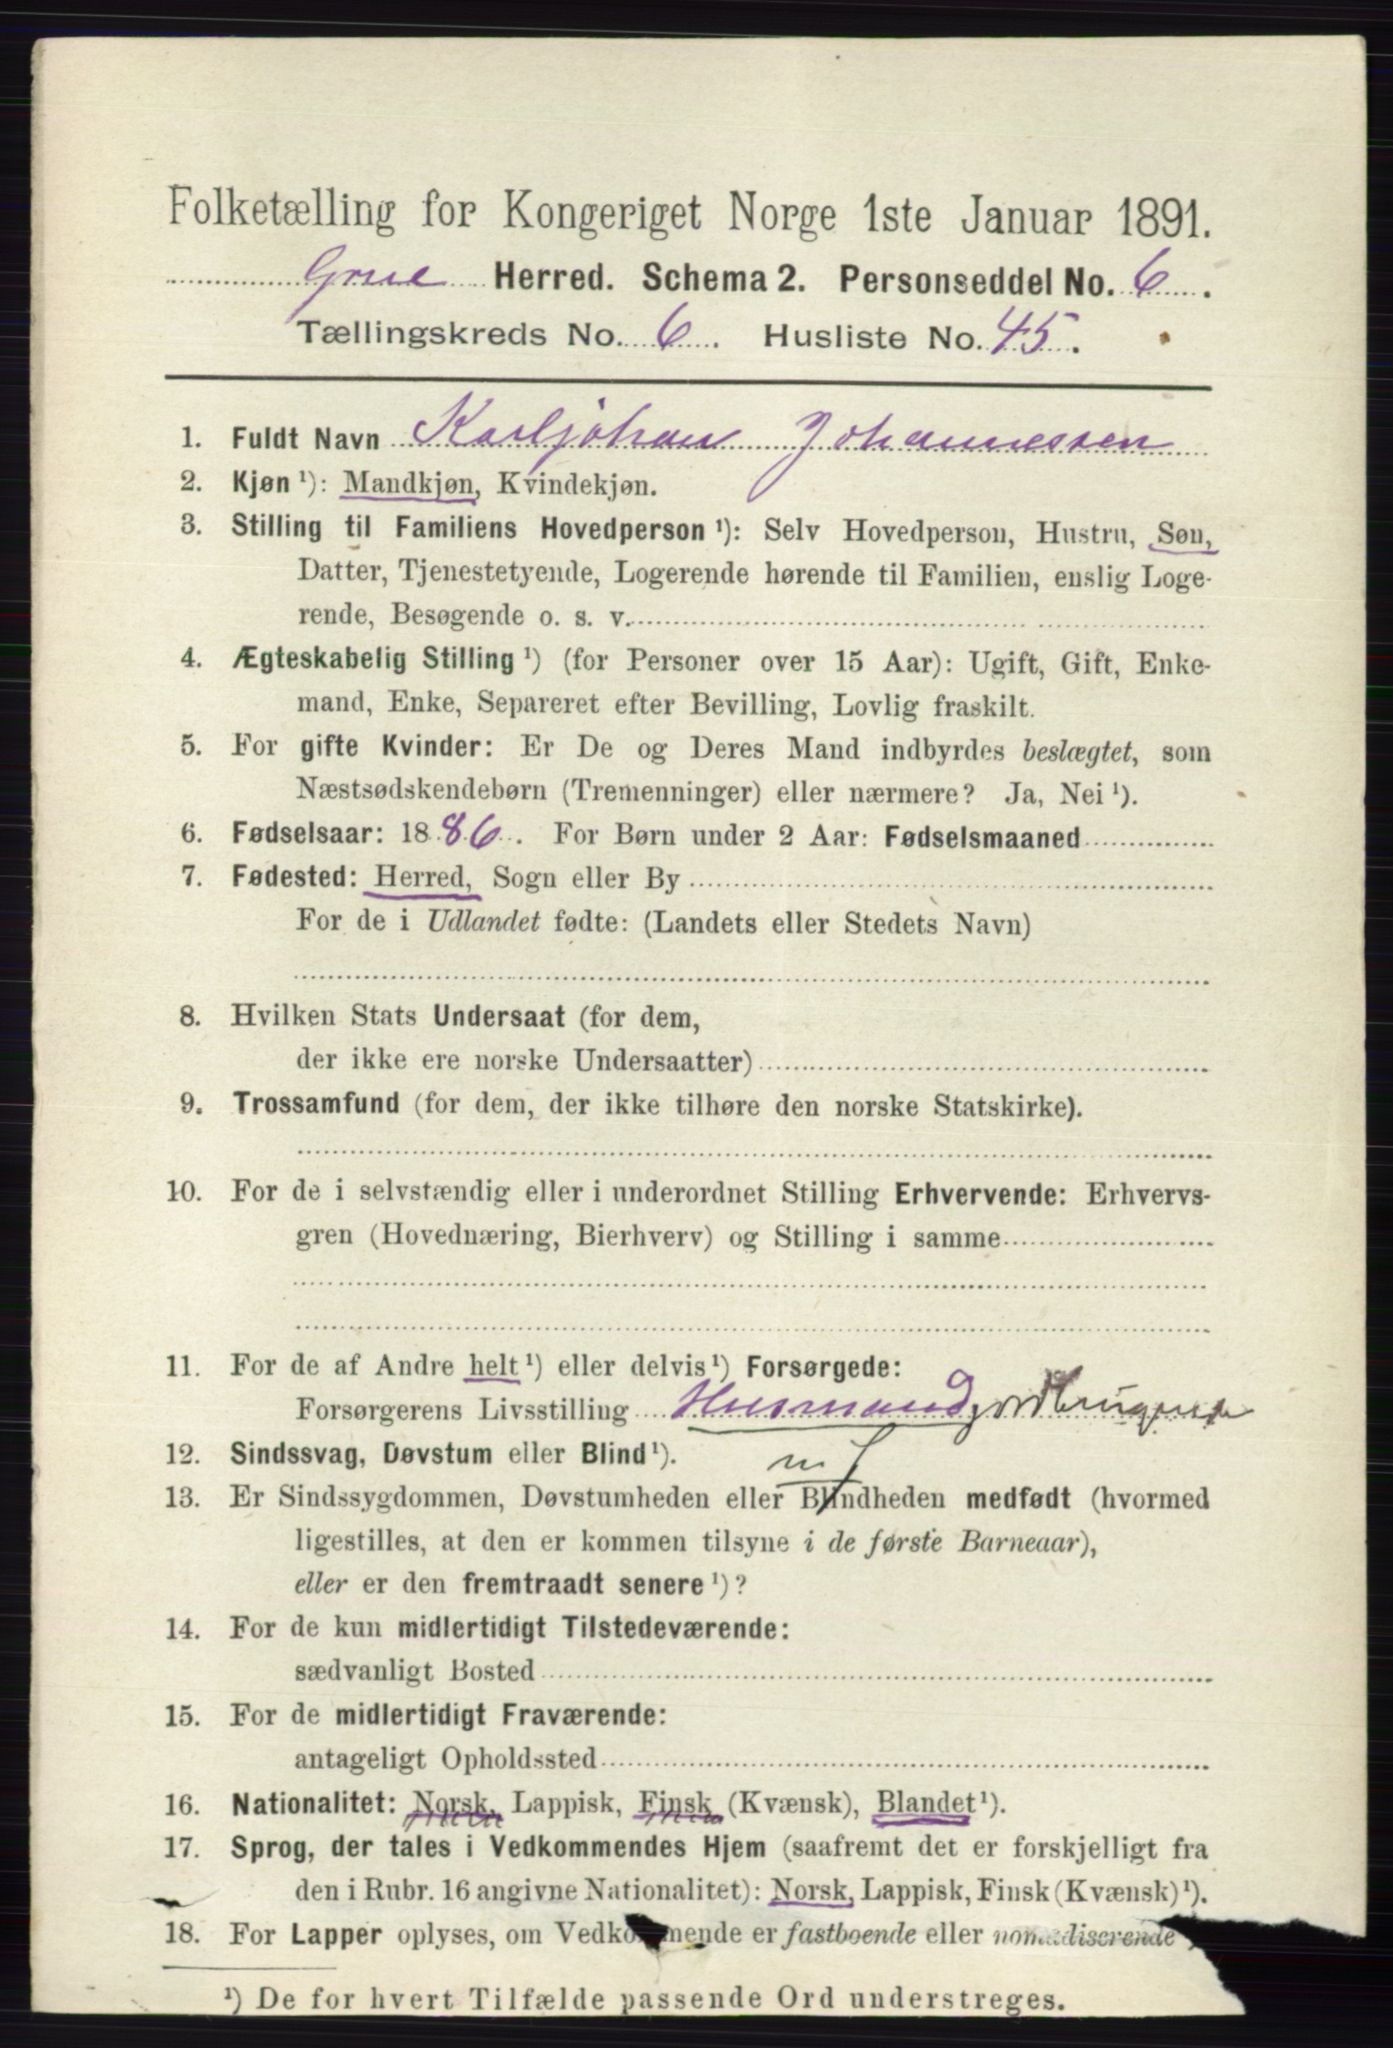 Folketælling for Kongeriget Norge 1ste Januar 1891.
Grue Herred. Schema 2. Personseddel No. 6.
Tællingskreds No. 6. Husliste No. 45.
1. Fuldt Navn Karljohan Johannessen
2. Kjøn ¹): Mandkjøn, Kvindekjøn.
3. Stilling til Familiens Hovedperson ¹): Selv Hovedperson, Hustru, Søn,
Datter, Tjenestetyende, Logerende hørende til Familien, enslig Loge-
rende, Besøgende o. s. v.
4. Ægteskabelig Stilling ¹) (for Personer over 15 Aar): Ugift, Gift, Enke-
mand, Enke, Separeret efter Bevilling, Lovlig fraskilt.
5. For gifte Kvinder: Er De og Deres Mand indbyrdes beslægtet, som
Næstsødskendebørn (Tremenninger) eller nærmere? Ja, Nei ¹).
6. Fødselsaar: 1886. For Børn under 2 Aar: Fødselsmaaned
7. Fødested: Herred, Sogn eller By
For de i Udlandet fødte: (Landets eller Stedets Navn)
8. Hvilken Stats Undersaat (for dem,
der ikke ere norske Undersaatter)
9. Trossamfund (for dem, der ikke tilhøre den norske Statskirke).
10. For de i selvstændig eller i underordnet Stilling Erhvervende: Erhvervs-
gren (Hovednæring, Bierhverv) og Stilling i samme
11. For de af Andre helt ¹) eller delvis ¹) Forsørgede:
Forsørgerens Livsstilling Husmand, jordbruger
m J
12. Sindssvag, Døvstum eller Blind ¹).
13. Er Sindssygdommen, Døvstumheden eller Blindheden medfødt (hvormed
ligestilles, at den er kommen tilsyne i de første Barneaar),
eller er den fremtraadt senere ¹)?
14. For de kun midlertidigt Tilstedeværende:
sædvanligt Bosted
15. For de midlertidigt Fraværende:
antageligt Opholdssted
16. Nationalitet: Norsk, Lappisk, Finsk (Kvænsk), Blandet ¹).
17. Sprog, der tales i Vedkommendes Hjem (saafremt det er forskjelligt fra
den i Rubr. 16 angivne Nationalitet): Norsk, Lappisk, Finsk (Kvænsk) ¹).
18. For Lapper oplyses, om Vedkommende er fastboende eller nomadiserende
¹) De for hvert Tilfælde passende Ord understreges.